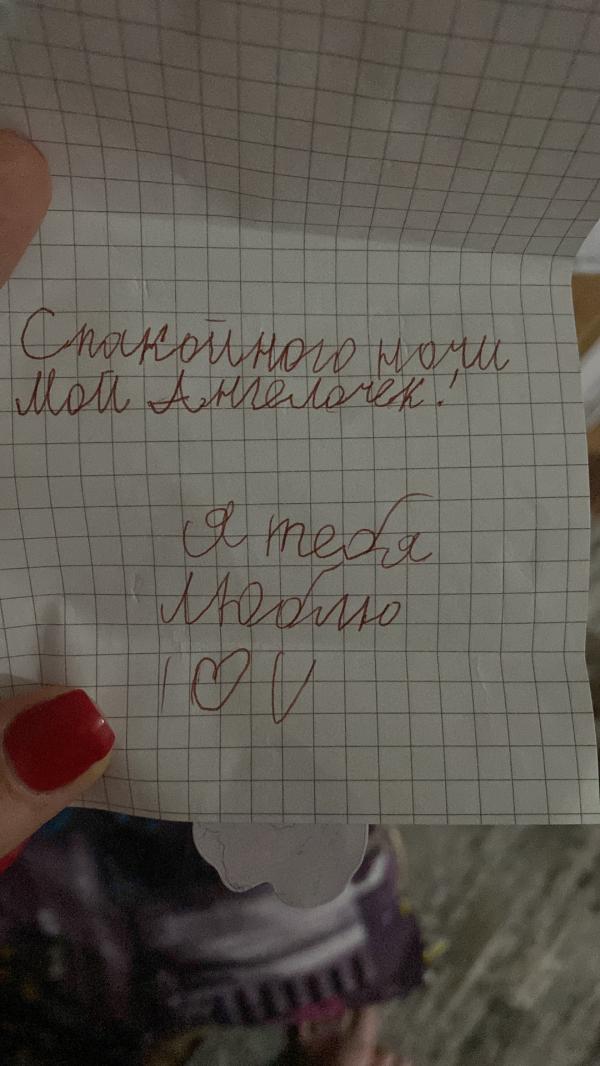 Спакойного ночи
Мой Ангелочек!
Я тебя
Люблю
I ♡ U